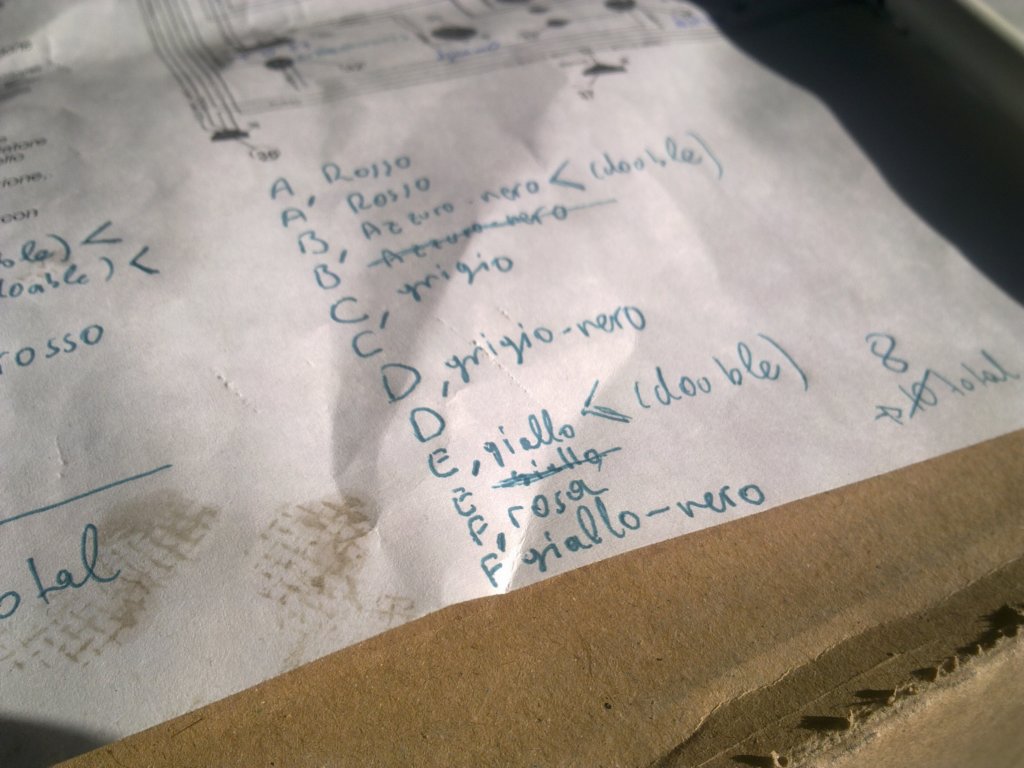 A, Rosso
A, Rosso
B, Azzuro-nero < (double)
B, Azzuro-nero
C, grigio
C
D, grigio-nero
D
E, giallo < (double)
E giallo
F, rosa
F, giallo-nero
8
total
ble) <
double) <
rosso
otal